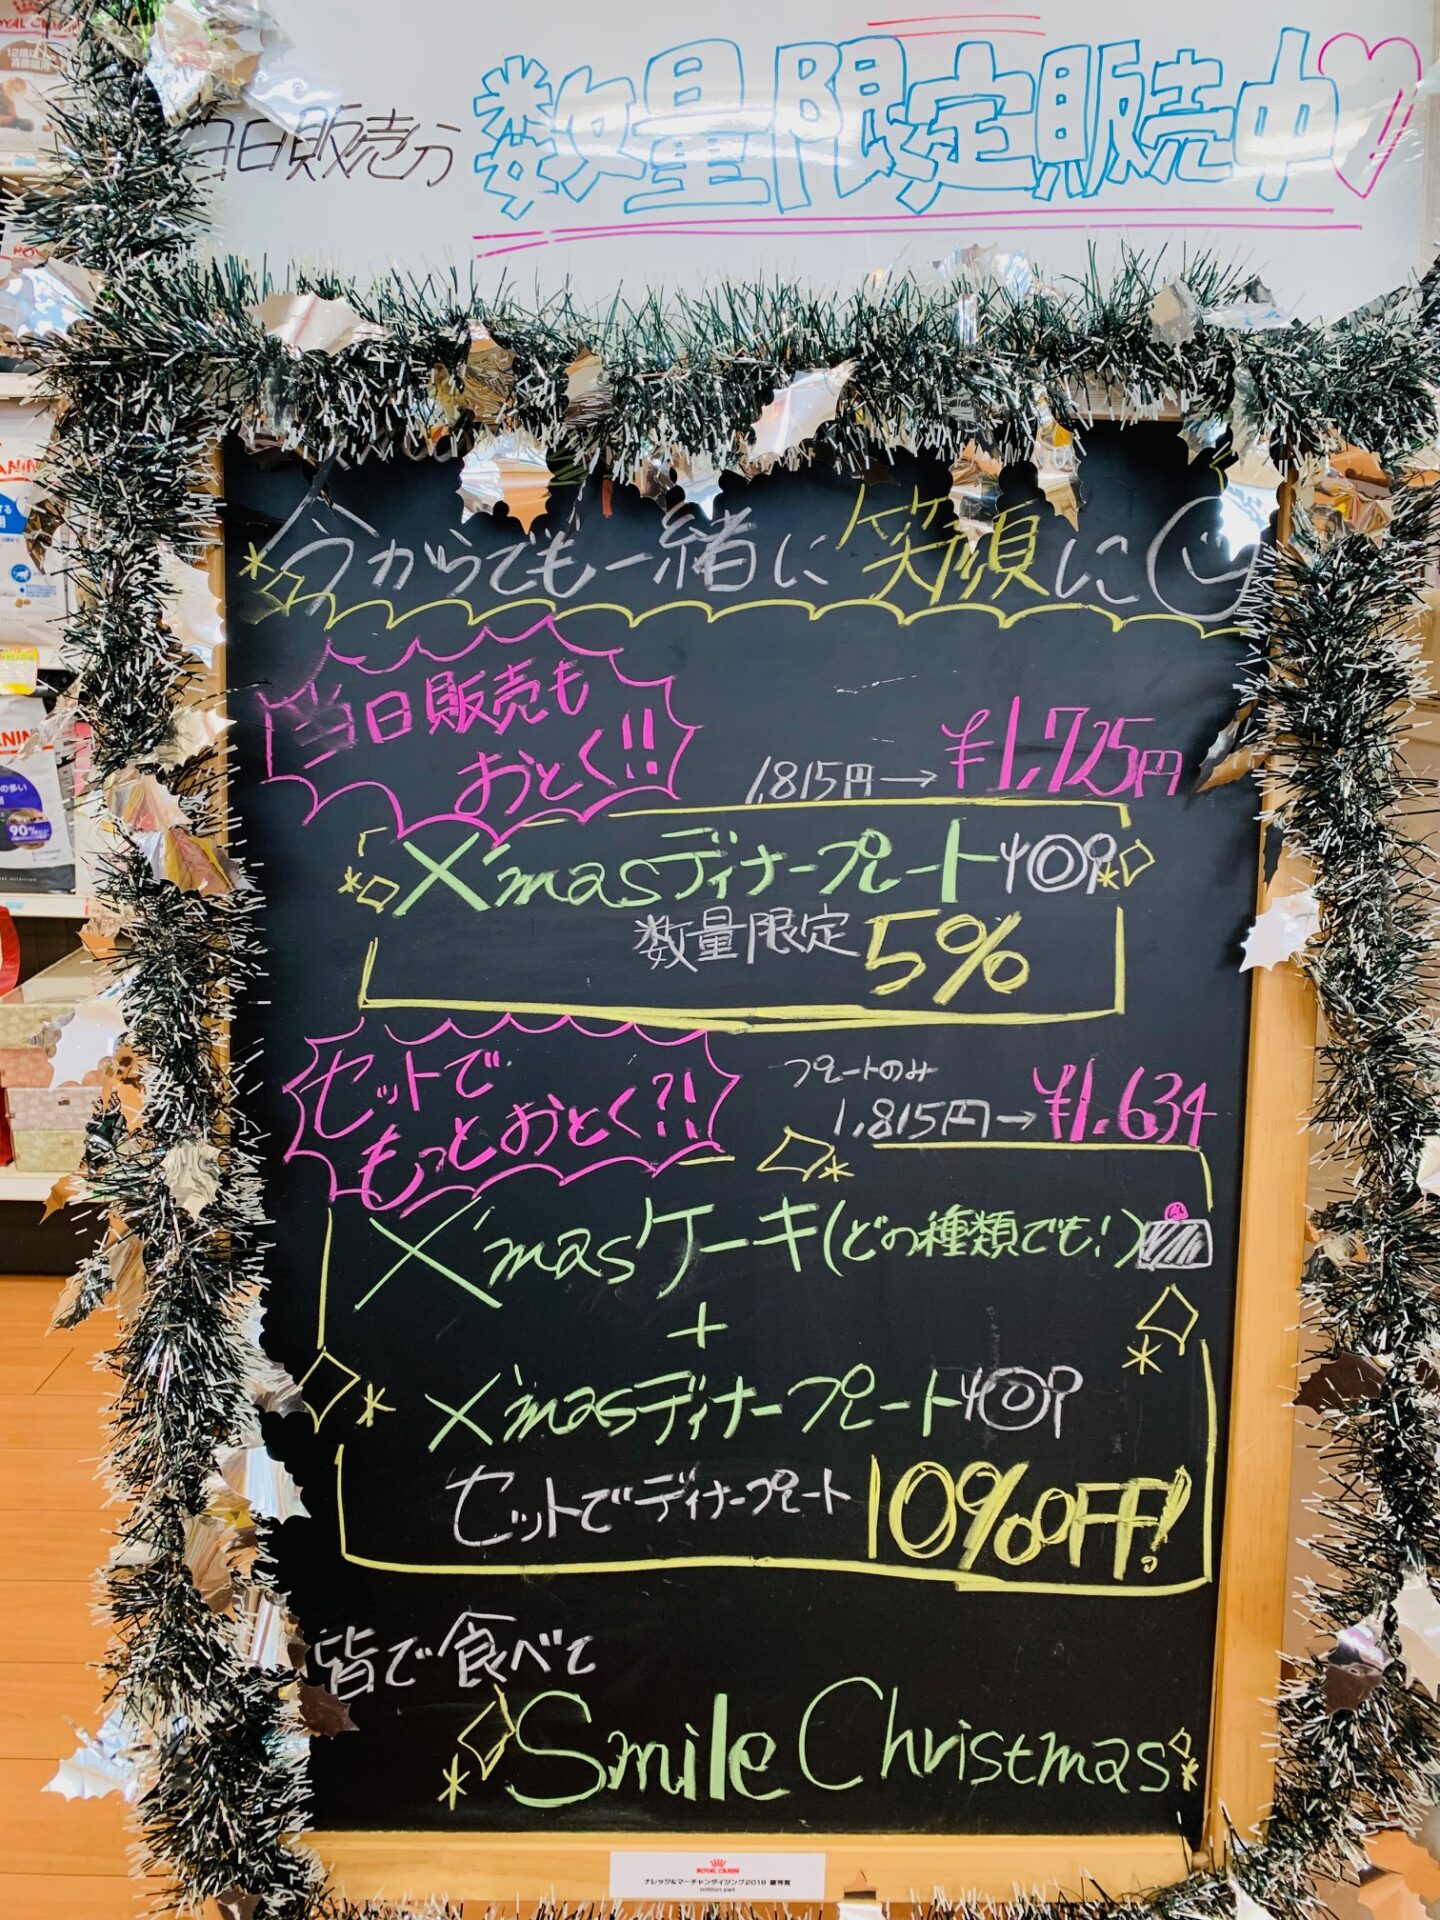 当日販売分 数量限定販売中
今からでも一緒に笑顔に
当日販売も
おとく!!
1,815円→¥1,725円
X'masディナープレート
数量限定 5%
セットで
もっとおとく?!
プレートのみ
1,815円→¥1,634
X'masケーキ(どの種類でも!)
+
X'masディナープレート
セットでディナープレート 10%OFF!
皆で食べて
Smile Christmas
ROYAL CANIN
ナレッジ&マーチャンダイジング2019 優秀賞
million pet
12歳以上
高齢猫用
90%以上